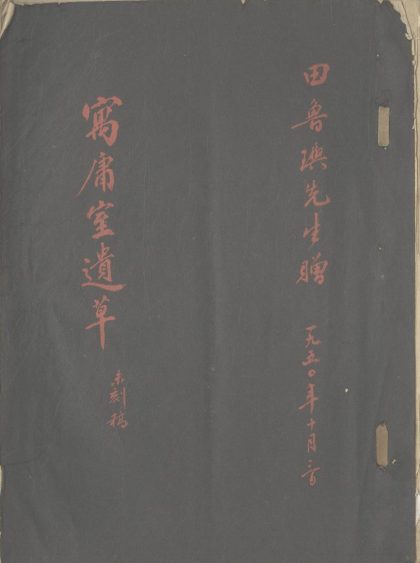 田魯璵先生贈
一九五〇年十月二日
寓庸室遺草
未刻稿